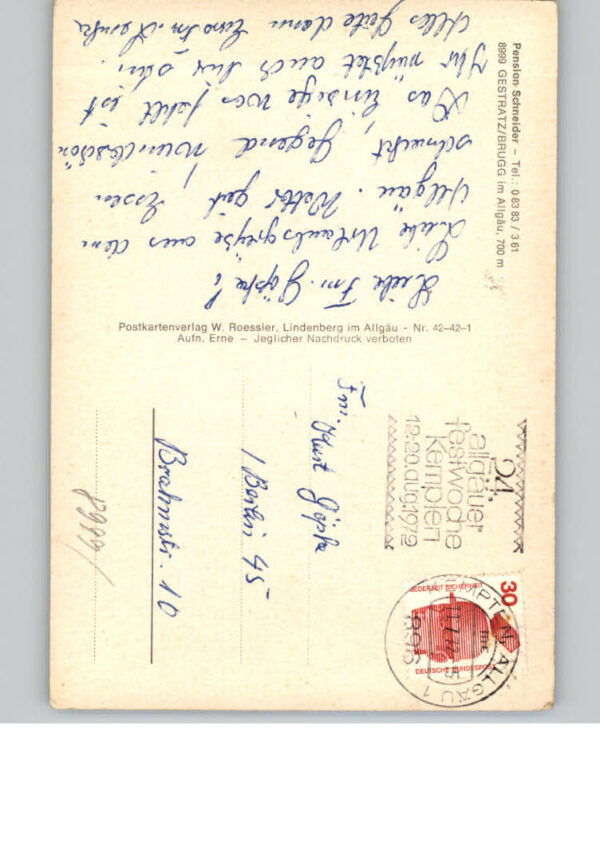 Pension Schneider – Tel.: 0 83 83 / 3 61
8999 GESTRATZ/BRUGG im Allgäu, 700 m
Liebe Fm. Göpke!
Liebe Urlaubsgrüße aus dem
Allgäu. Wetter gut, Essen
schmeckt, Gegend wunderschön
Das Einzige was fehlt ist
Ihr müßtet auch hier sein.
Alles Gute dann Eure Fm.
Postkartenverlag W. Roessler, Lindenberg im Allgäu - Nr. 42–42–1
Aufn. Erne – Jeglicher Nachdruck verboten
24.
allgäuer
festwoche
Kempten
12.-20.aug.1972
30
JEDERZEIT SICHERHEIT
DEUTSCHE BUNDESPOST
KEMPTEN, ALLGÄU 1
896
Fm. Kurt Göpke
1 Berlin 45
Brahmstr. 10